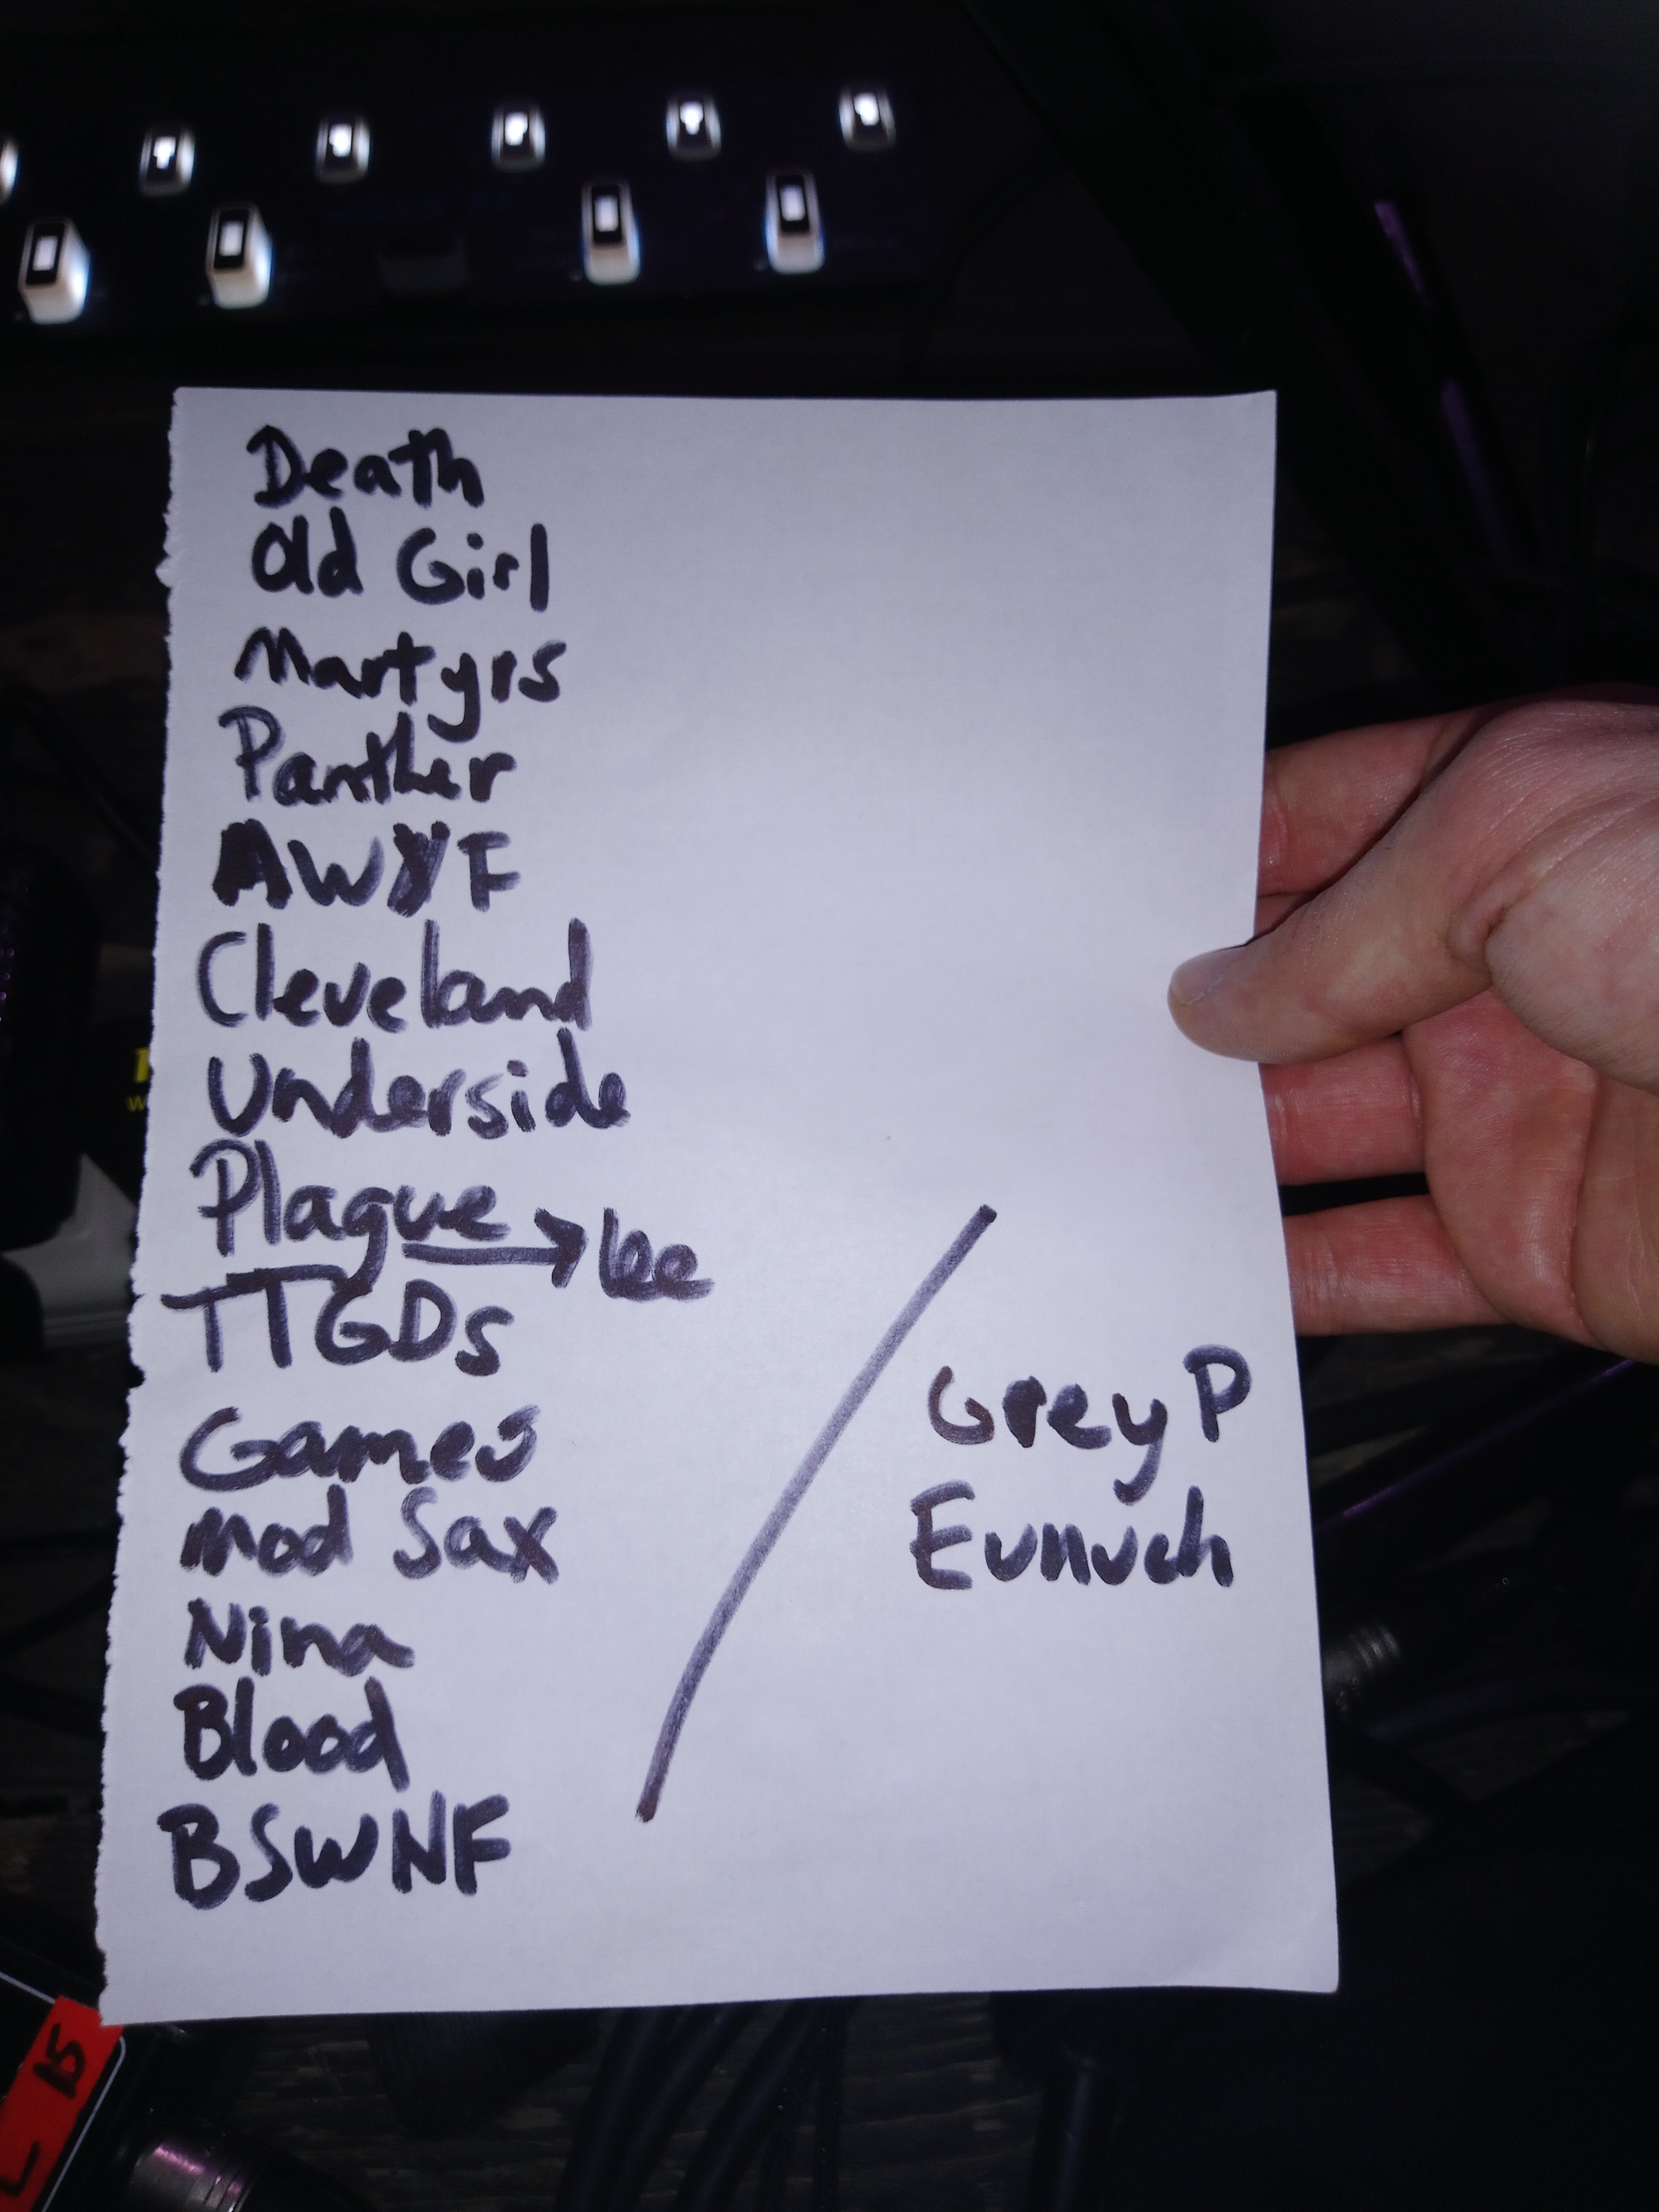 Death
Old Girl
Martyrs
Panther
AWYF
Cleveland
Underside
Plague → Lee
TTGDs
Games
Mod Sax
Nina
Blood
BSWNF
Grey P
Eunuch
15
L